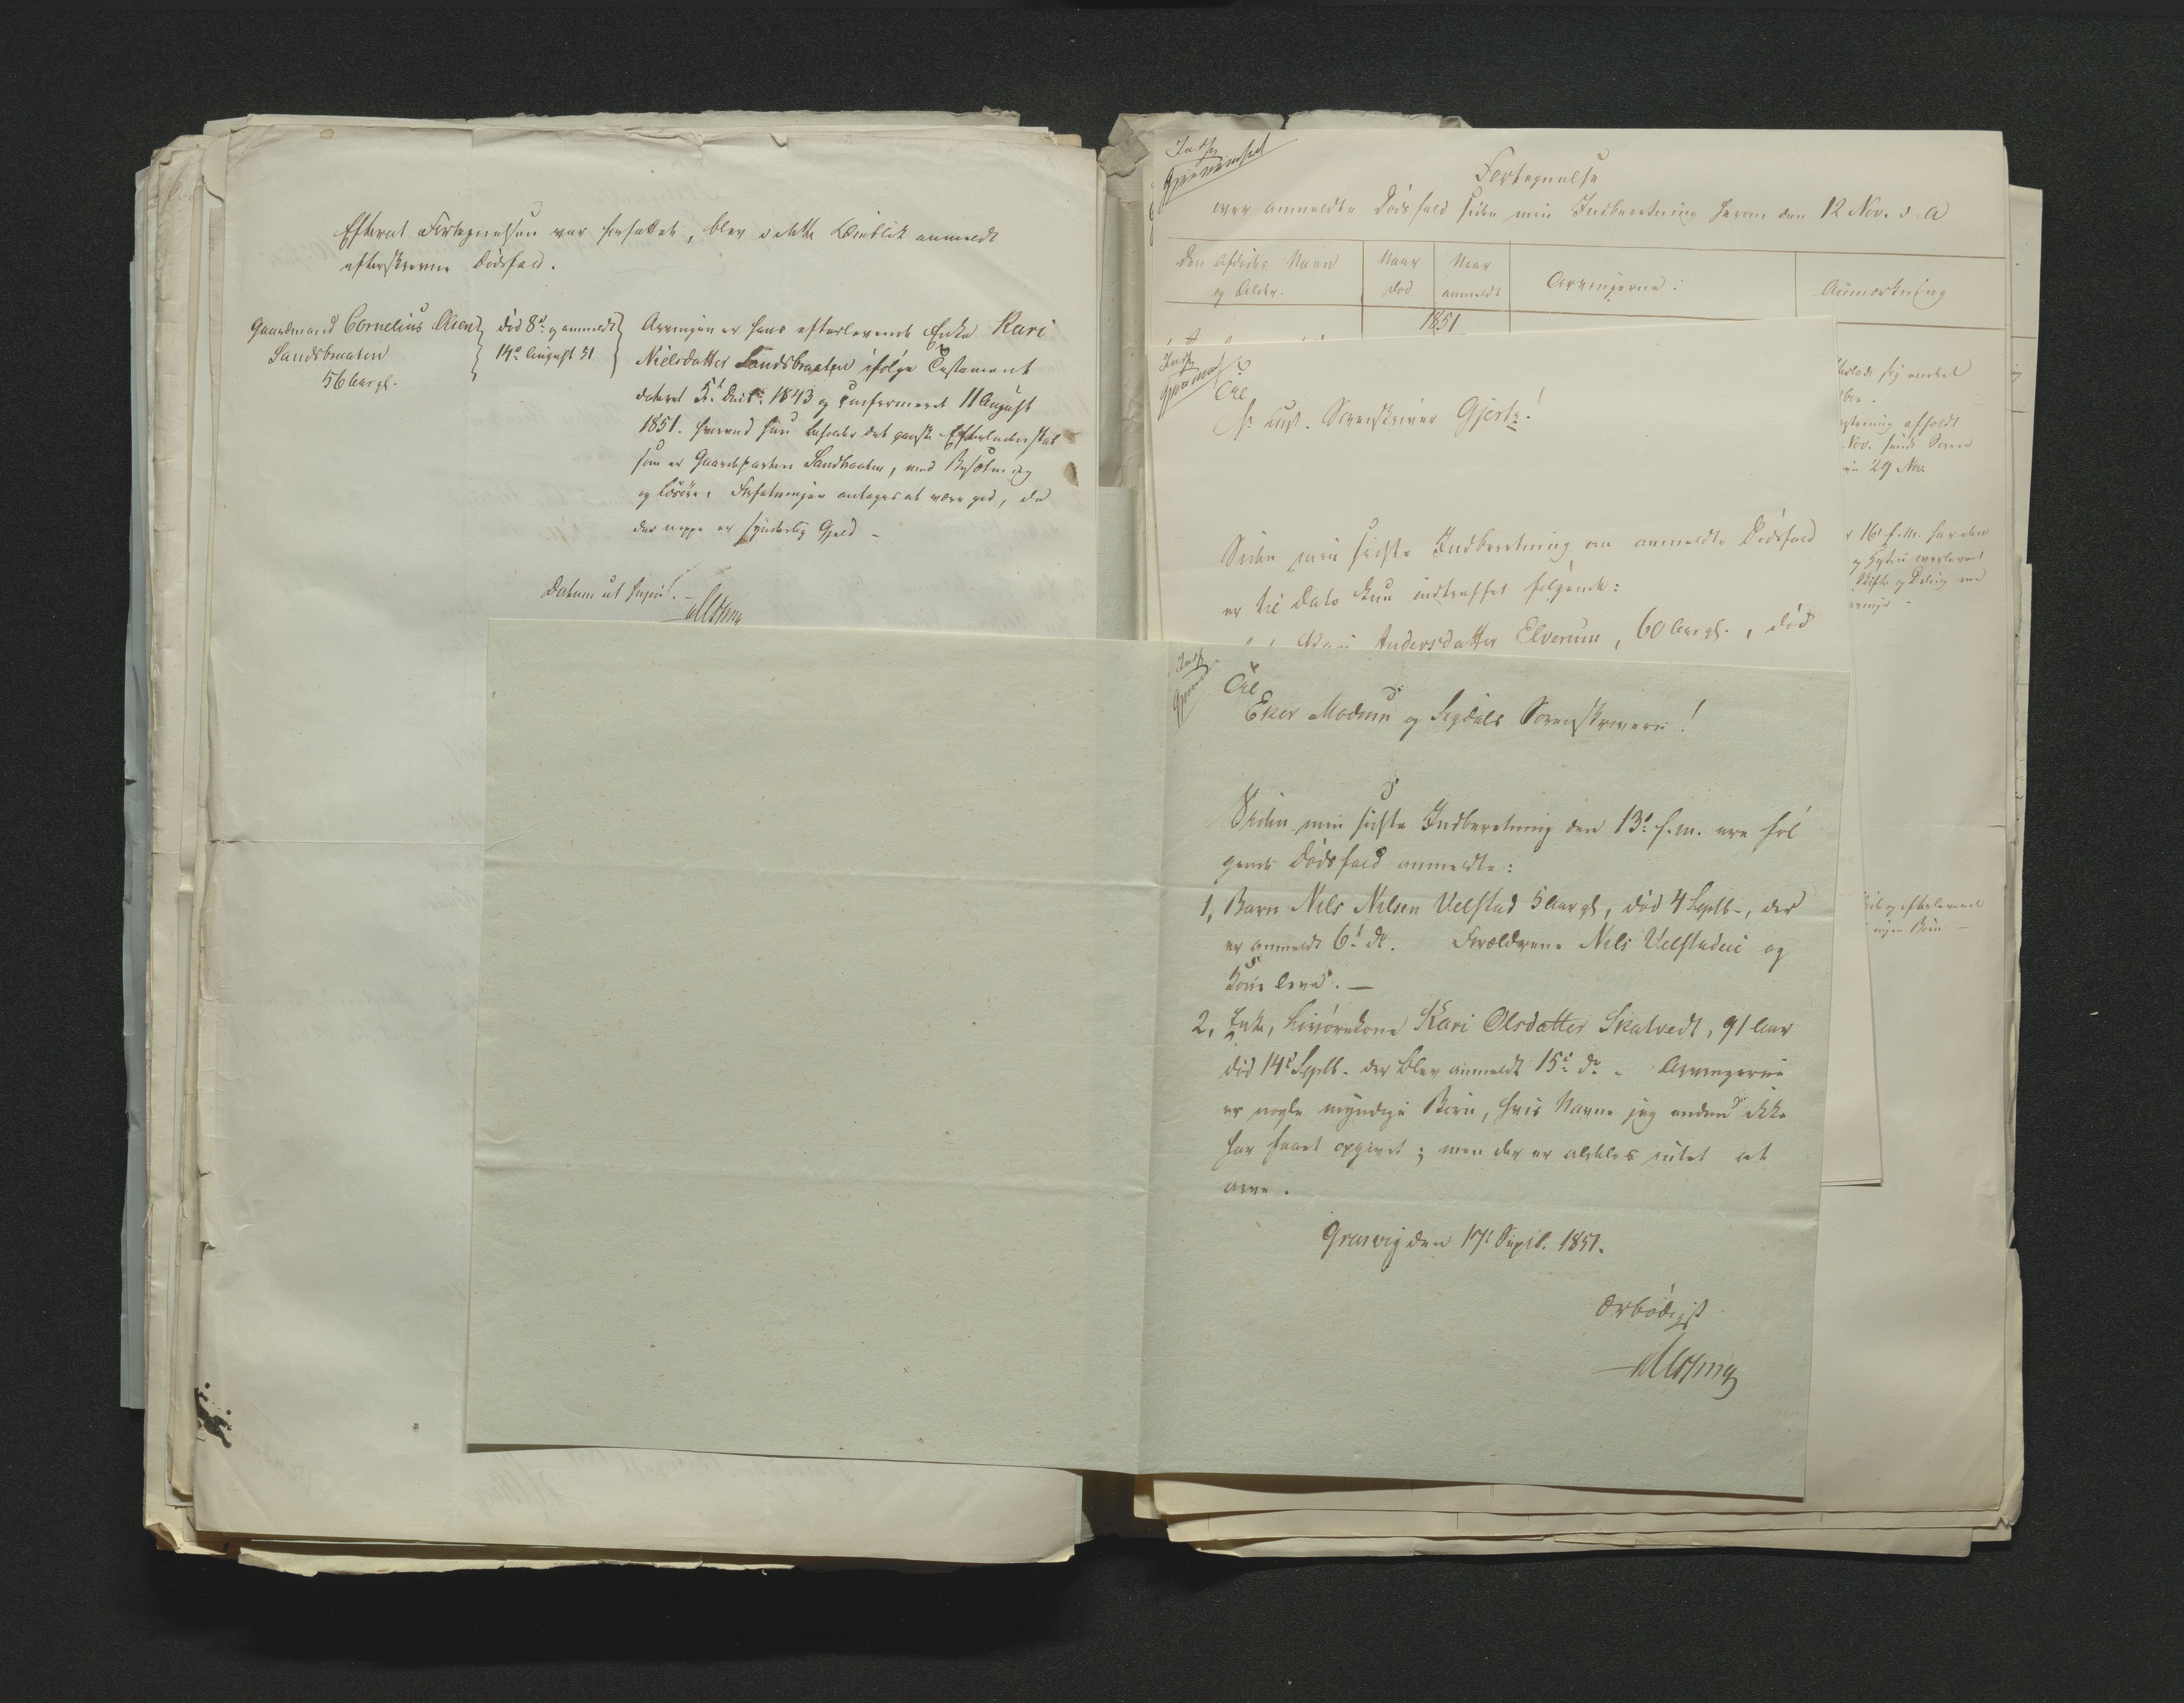 Efterat Fortegnelsen var forfattet, blev i dette Øieblik anmeldt
efterskrevne Dødsfald.
Gaardmand Cornelius Olsen
Sandsbraaten
56 Aar gl.
død 8de og anmeldt
14de August 51
Arvingen er hans efterlevende Enke Kari
Nielsdatter Sandsbraaten ifølge Testament
dateret 5te Decbr. 1843 og confirmeret 11 August
1851. hvorved hun beholder det ganske Efterladenskab
som er Gaardparten Sandbraaten, med Besætning
og Løsøre. Forfatningen antages at være god, da
der neppe er synderlig Gjeld -
Datum ut supra. -
Fortegnelse
over anmeldte Dødsfald siden min Indberetning herom den 12 Nov. d. A
Den Afdødes Navn
og Alder.
Naar
død
Naar
anmeldt
Arvingerne:
Anmærkning
1851
Til
Hr. Sorenskriver Gjertz!
Siden min sidste Indberetning om anmeldte Dødsfald
er til Dato kun indtruffet følgende:
Kari Andersdatter Elverum, 60 Aar gl., død
afholdt
Nov.
29 Nov.
16 f.M. har den
og efterlevende
ingen Børn -
Til
Eker Modum og Sigdals Sorenskriveri!
Siden min sidste Indberetning den 13de f.m. ere føl
gende Dødsfald anmeldte:
1, Barn Nils Nilsen Ulfstad 5 Aar gl, død 4 Septb., der
er anmeldt 6te do. Forældrene Nils Velstadeie og
Kone leve. -
2, Enke, Livørekone Kari Olsdatter Skalvedt, 91 Aar
død 14de Septb. der blev anmeldt 15de do. - Arvingerne
er nogle myndige Børn, hvis Navne jeg endnu ikke
har faaet opgivet; men der er aldeles intet at
arve.
Grasvig den 17de Septb. 1851.
Ærbødigst